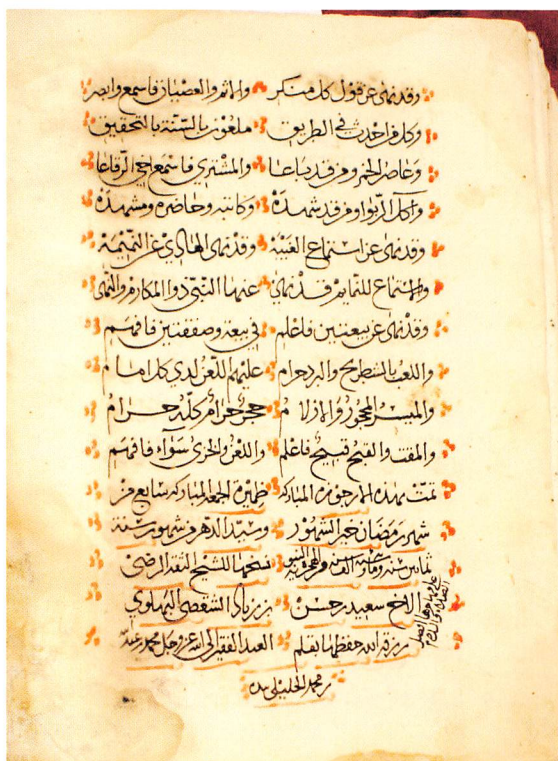 وقد نهى عن قول كل منكر والاثم والعصيان فاسمع وابصر
وكل من احدث في الطريق ملعون بالسنة بالتحقيق
وعاصر الخمر ومن قد باعا والمشتري فاسمع اخي الرقاعا
واكل الربوا ومن قد شهده وكاتبه وحاضره ومشهده
وقد نهى عن استماع الغيبة وقد نهى الهادي عن النميمة
والاستماع للنمايم قد نهى عنها النبي ذو المكارم والنهى
وقد نهى عن بيعتين فاعلم في بيعة وصفقتين فافهم
واللعب بالشطرنج والنرد حرام عليهم اللعن لدى كل امام
والميسر المحجور والازلام حجر حرام كله حرام
والمقت والقبح قبيح فاعلم واللعن والخزى سواء فافهم
تمت بهذه الارجوزة المباركه ظهيرة الجمعة المباركه سابع من
شهر رمضان خير الشهور وسيد الدهر وشهور سنة
ثمانين سنه ومأتين سنه الف سنه من الهجرية النبوية نسخها للشيخ الثقة الرضي
على مهاجرها افضل الصلاة والسلام
الاخ سعيد بن حسن بن زياد الشقصي البهلوي
رزقه الله حفظها بقلم العبد الفقير الى الله عز وجل محمد بن عبدالله
بن محمد الخليلي بيده